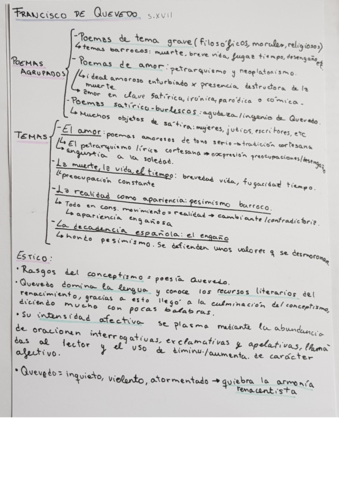 FRANCISCO DE QUEVEDO S.XVII
- Poemas de tema grave (filosóficos, morales, religiosos)
↳ temas barrocos: muerte, breve vida, fugaz tiempo,
POEMAS AGRUPADOS
- Poemas de amor: petrarquismo y neoplatonismo.
↳ ideal amoroso enturbiado x presencia destructora de la muerte
↳ amor en clave satírica, irónica, paródica o cómica.
- Poemas satírico-burlescos: agudeza/ingenio de Quevedo
↳ Muchos objetos de sátira: mujeres, juicios, escritores, etc
TEMAS
- El amor: poemas amorosos de tono serio → tradición cortesana
↳ El petrarquismo/lírica cortesana → expresión preocupaciones/
angustia a la soledad.
- La muerte, la vida, el tiempo: brevedad vida, fugacidad tiempo.
↳ preocupación constante
- La realidad como apariencia: pesimismo barroco.
↳ Todo en cons. movimiento → realidad → cambiante/contradictoria
↳ apariencia engañosa
- La decadencia española: el engaño
↳ hondo pesimismo. Se defienden unos valores q se desmoronan
ESTILO:
• Rasgos del conceptismo → poesía Quevedo.
• Quevedo domina la lengua y conoce los recursos literarios del
renacimiento, gracias a esto llegó a la culminación del conceptismo,
diciendo mucho con pocas palabras.
• Su intensidad afectiva se plasma mediante la abundancia
de oraciones interrogativas, exclamativas y apelativas, llama-
das al lector y el uso de diminu./aumenta. de carácter
afectivo.
• Quevedo = inquieto, violento, atormentado → quiebra la armonía
renacentista